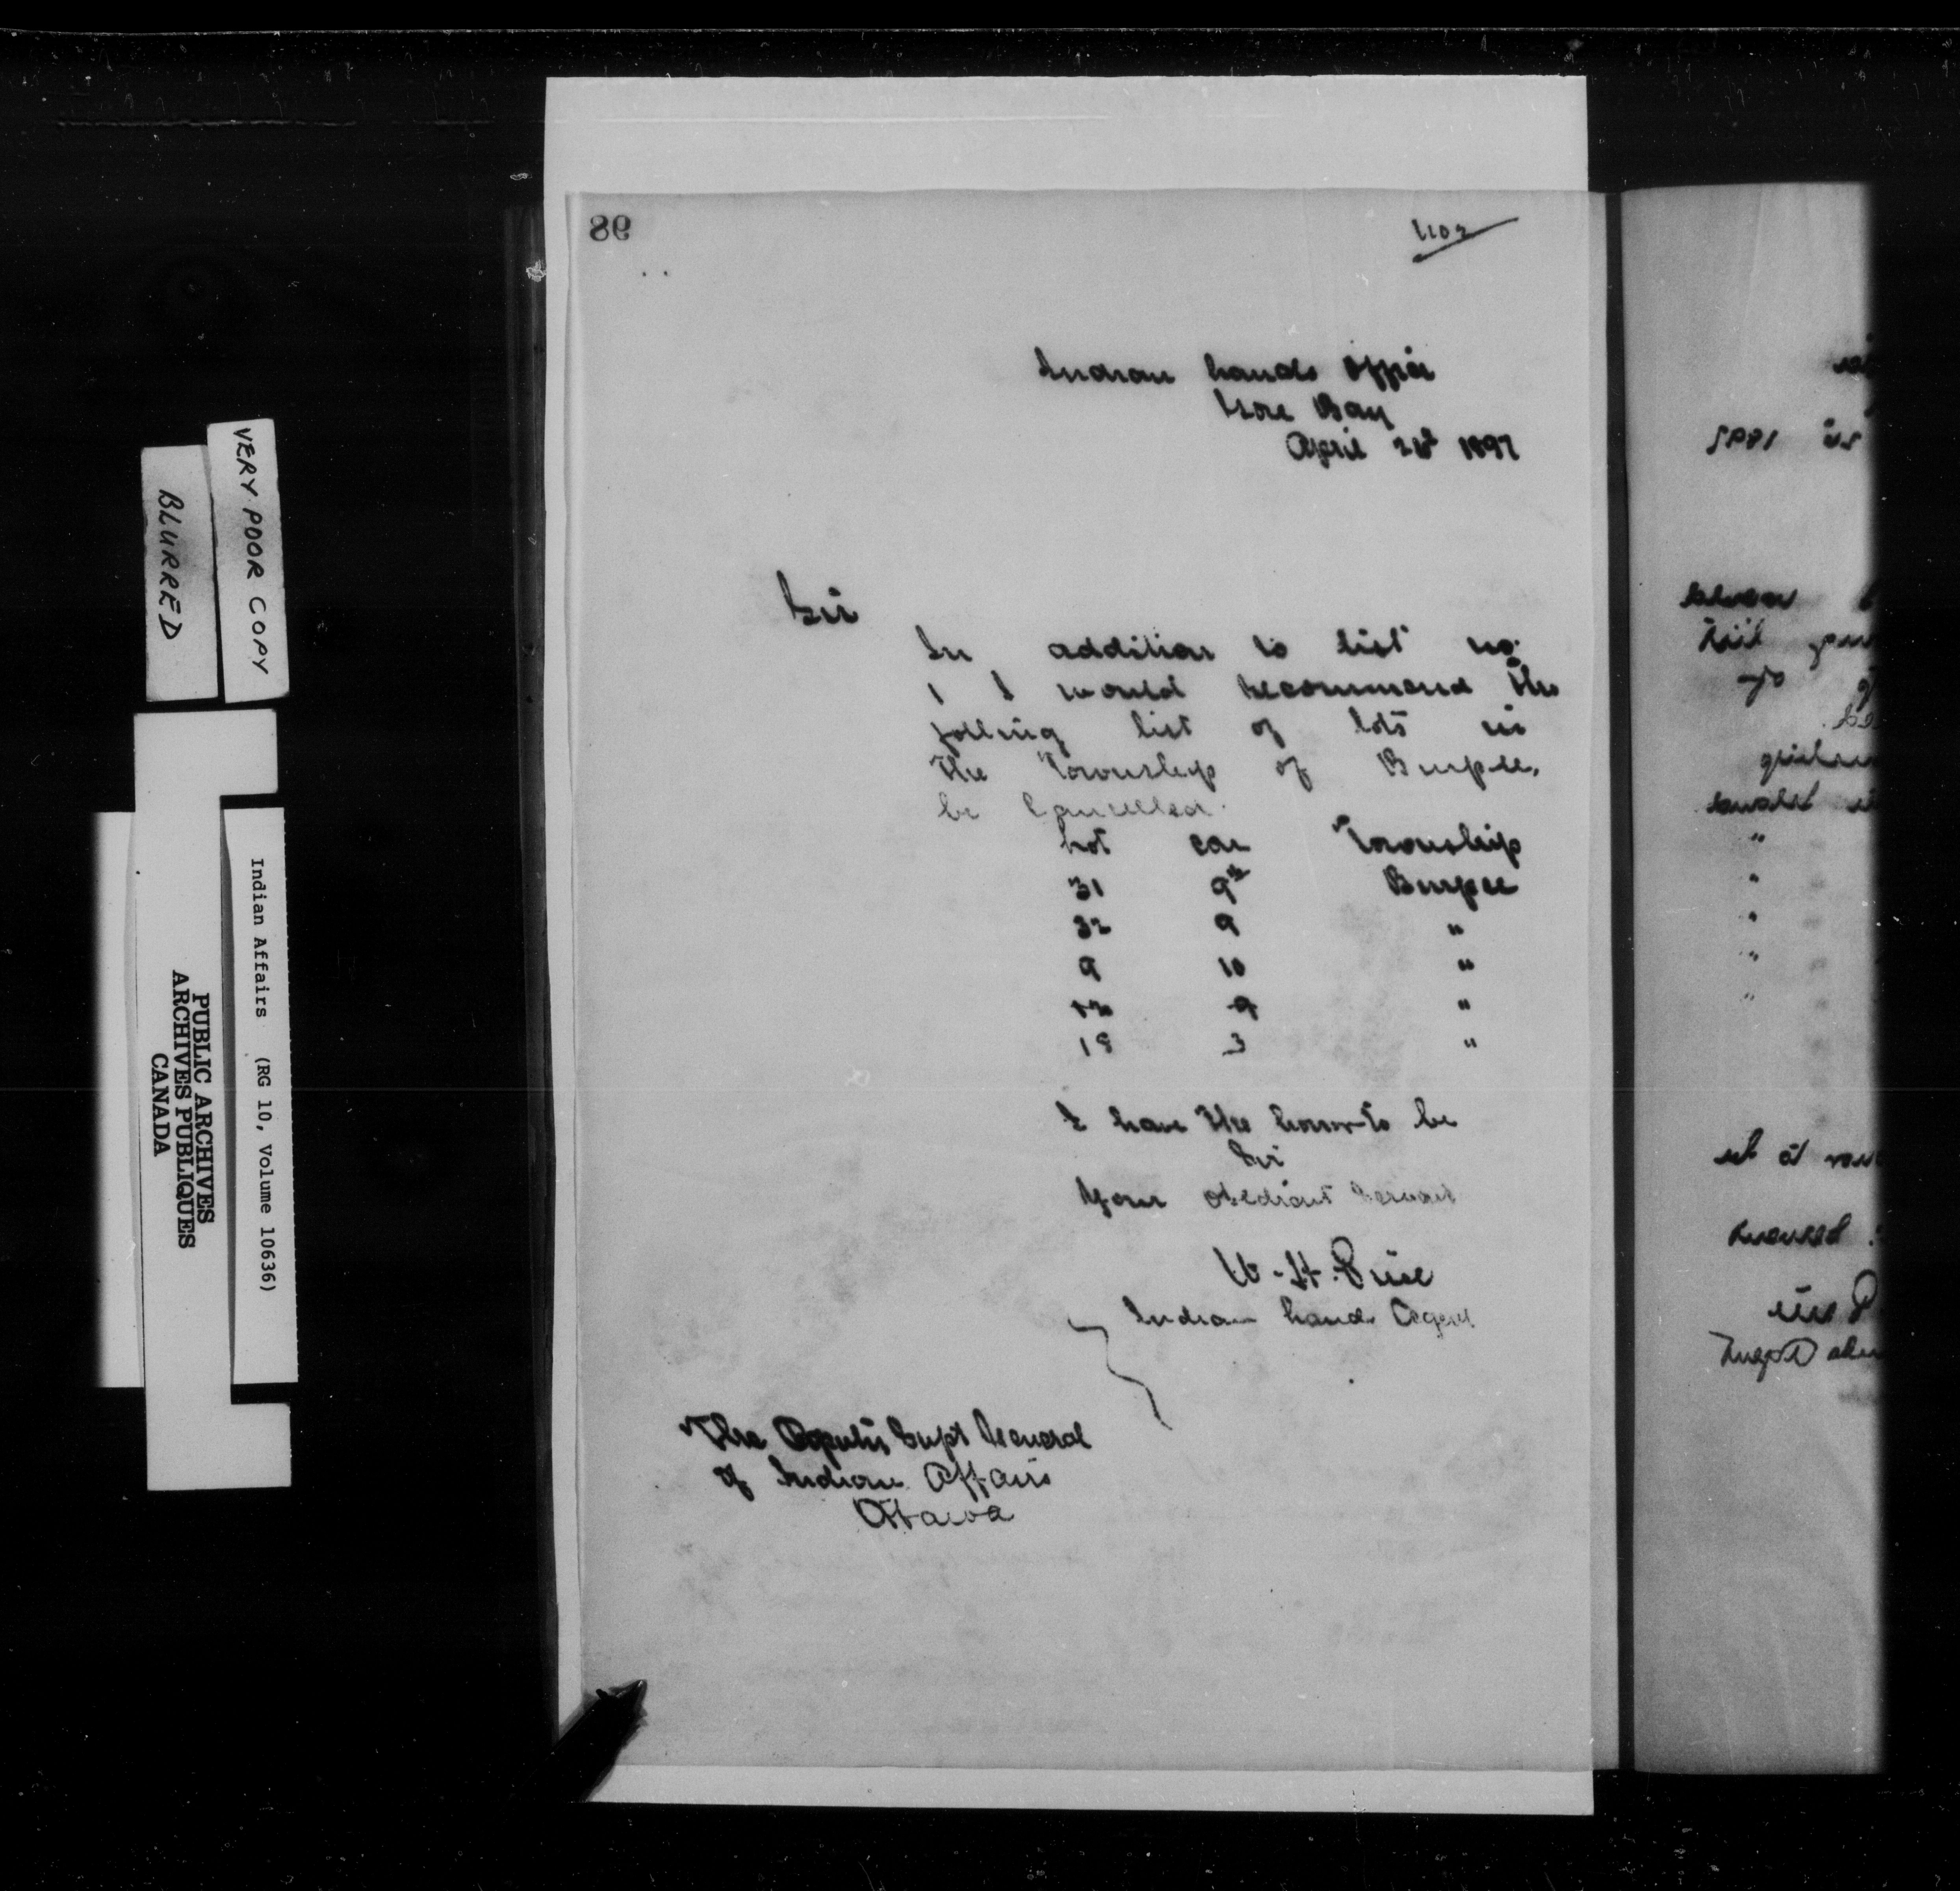 86
1102
Indian Lands Office
Gore Bay
April 21st 1897
Sir
In addition to list no.
1 I would recommend the
folling list of lots in
the Township of Burpee,
be Cancelled.
Lot Con Township
31 9th Burpee
32 9 "
9 10 "
9 "
18 3 "
I have the honor to be
Sir
Your obedient Servant
W. H. Price
Indian Lands Agent
The Deputy Supt General
of Indian Affairs
Ottawa
VERY POOR COPY
BLURRED
Indian Affairs (RG 10, Volume 10636)
PUBLIC ARCHIVES
ARCHIVES PUBLIQUES
CANADA